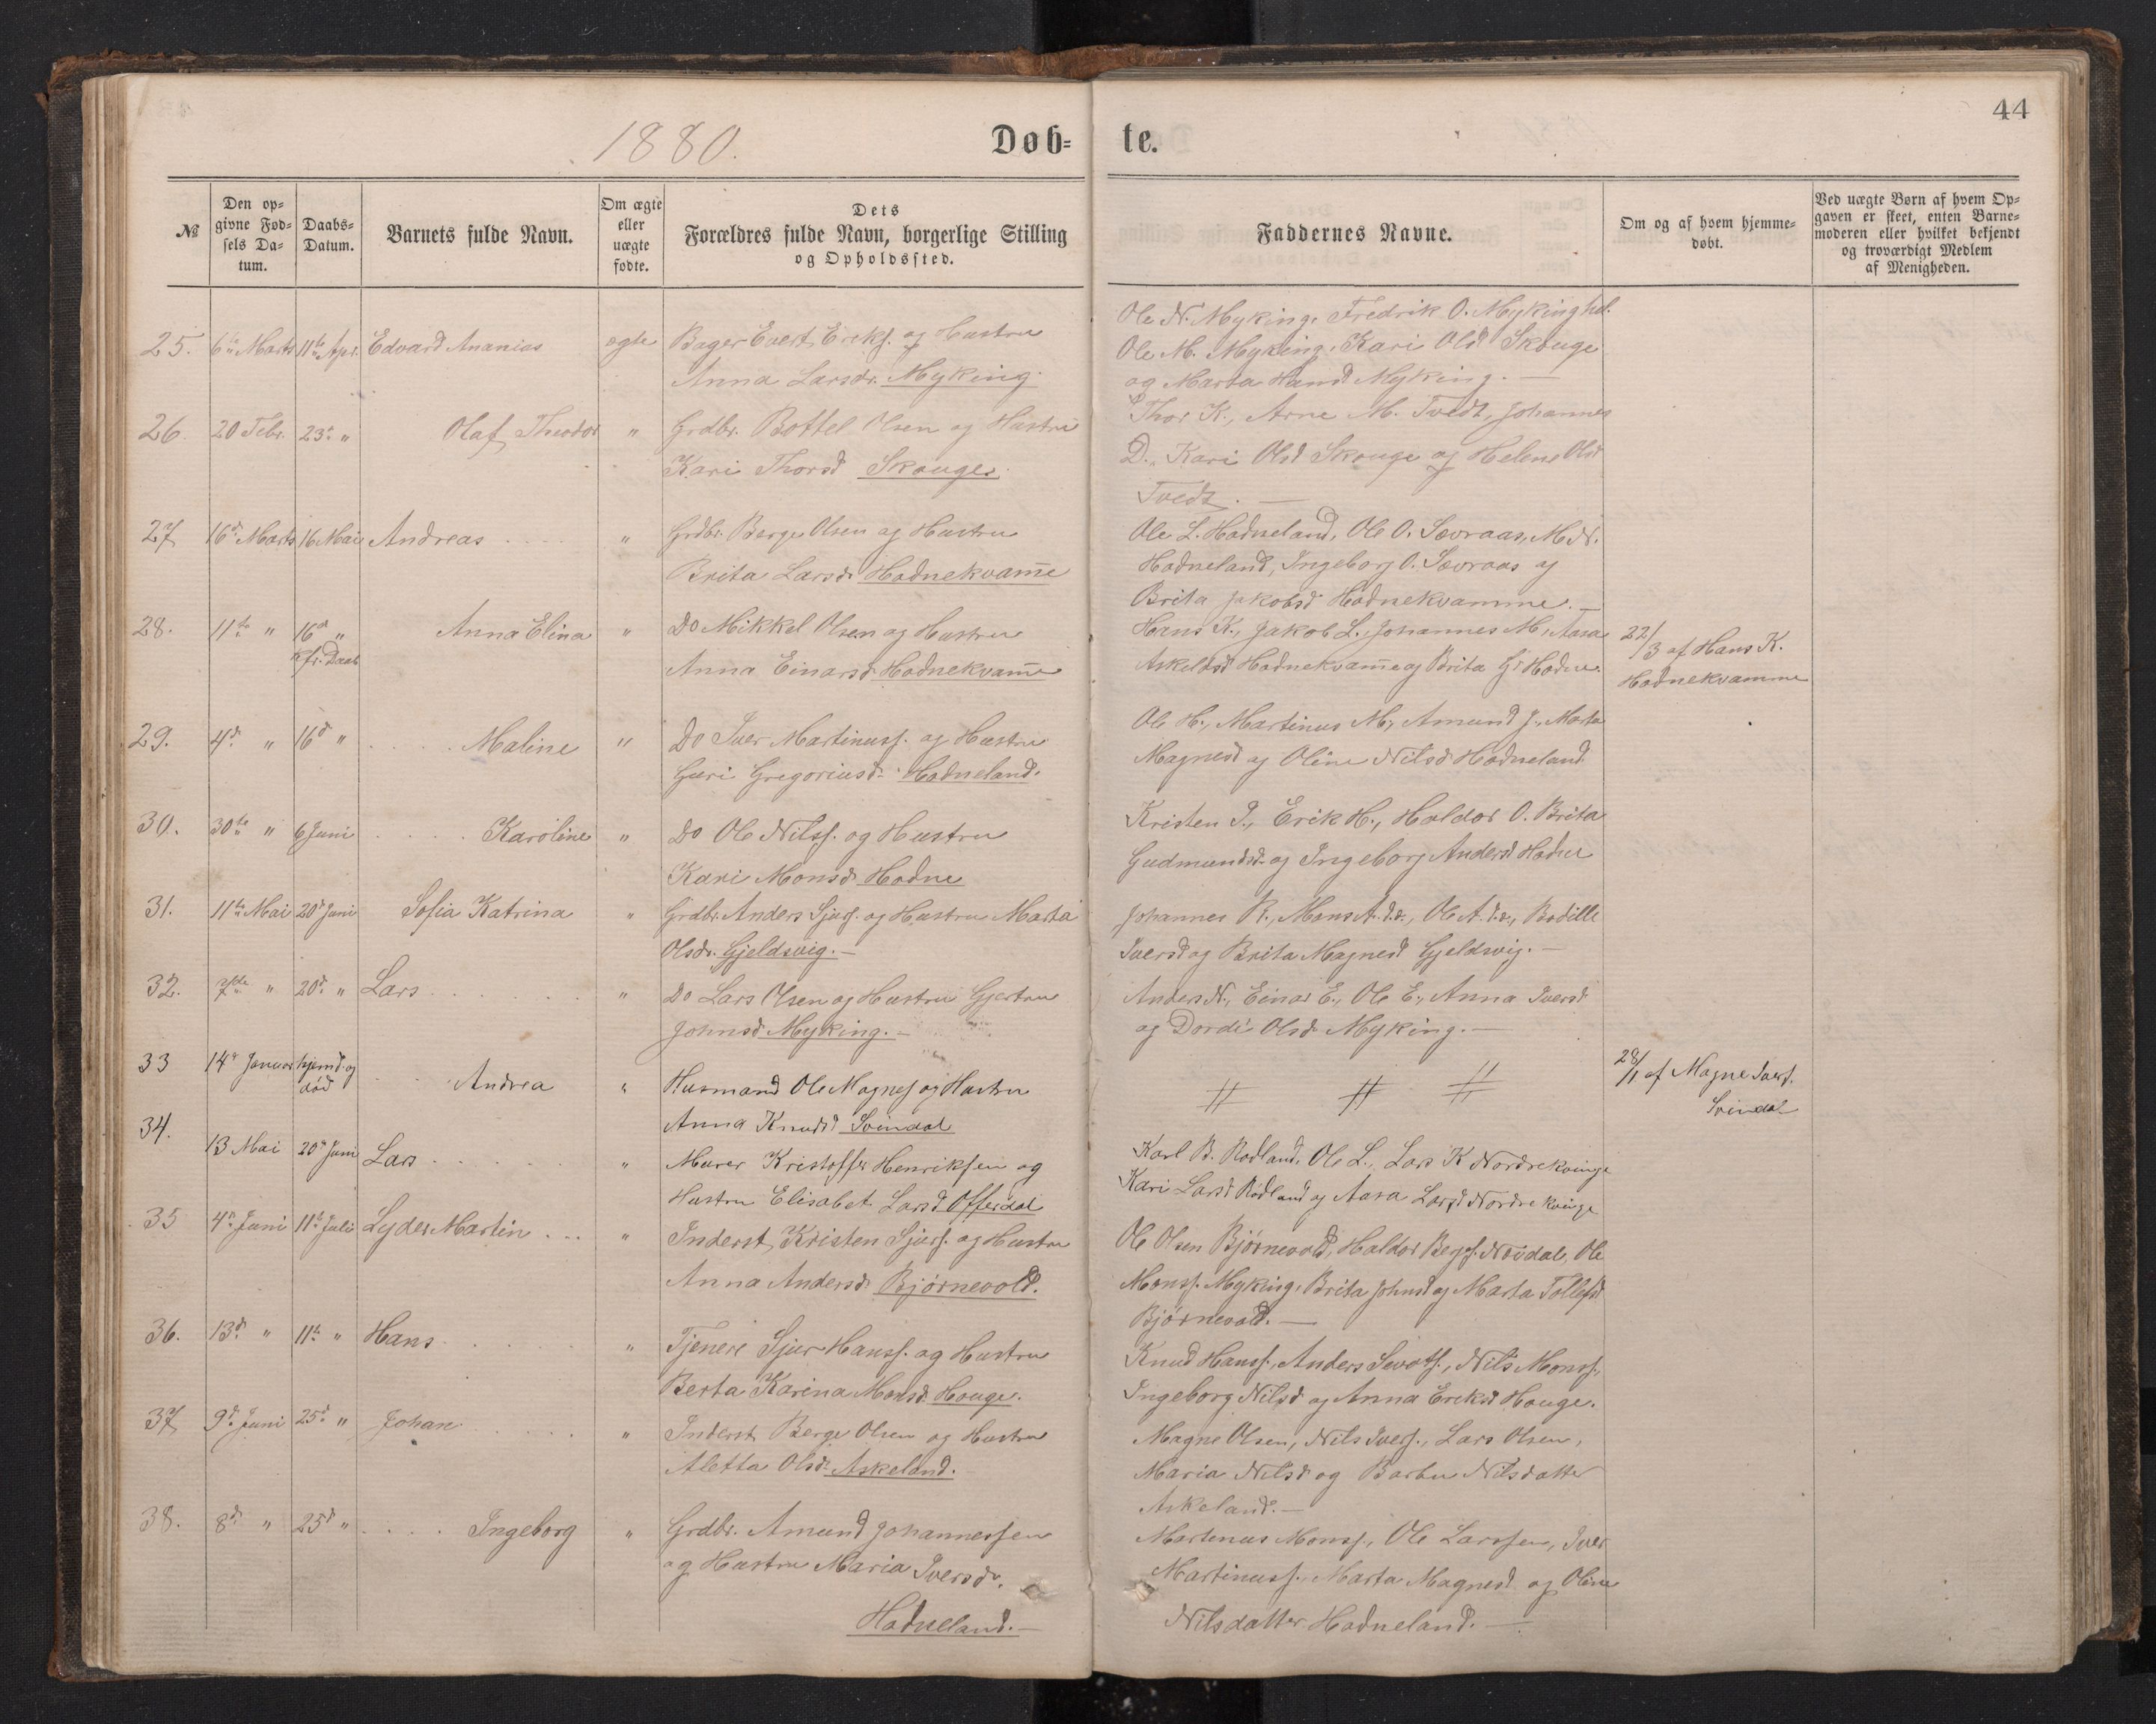 44
1880.
Døb-
te.
№
Den op-
givne Fød-
sels Da-
tum.
Daabs-
Datum.
Barnets fulde Navn.
Om ægte
eller
uægte
fødte.
Dets
Forældres fulde Navn, borgerlige Stilling
og Opholdssted.
Faddernes Navne.
Om og af hvem hjemme-
døbt.
Ved uægte Børn af hvem Op-
gaven er skeet, enten Barne-
moderen eller hvilket bekjendt
og troværdigt Medlem
af Menigheden.
25. 6te Marts 11te Apr. Edvard Ananias ægte Bager Evert Eriks. og Hustru
Anna Larsdr. Myking.
Ole N. Myking, Fredrik O. Myking
Ole M. Myking, Kari Olsd Skouge
og Marta Hansd Myking. —
26. 20 Febr. 23d " Olaf Theodor " Grdbr. Bottel Olsen og Hustru
Kari Thorsd Skouge.
Thor K., Arne M. Tvedt, Johannes
D., Kari Olsd Skouge og Helene Olsd
Tvedt. —
27 16d Marts 16 Mai Andreas " Grdbr. Berge Olsen og Hustru
Brita Larsd. Hodnekvam̄e
Ole L. Hodneland, Ole O. Sævraas, M. N.
Hodneland, Ingeborg O. Sævraas og
Brita Jakobsd Hodnekvamme. —
28. 11te " 16d " Anna Elina " Do Mikkel Olsen og Hustru
Daab
Anna Einarsd. Hodnekvam̄e
Hans K., Jakob L., Johannes M., Aasa
Askeldsd Hodnekvam̄e og Brita Hodne.
22/3 af Hans K.
Hodnekvamme
29. 4d. " 16d " Maline " Do Iver Martinuss. og Hustru
Guri Gregoriusd. Hodneland.
Ole H., Martinus M., Amund J., Marta
Magnesd og Oline Nilsd Hodneland.
30. 30te " 6 Juni Karoline " Do Ole Nilss. og Hustru
Kari Monsd. Hodne
Kristen P., Erik H., Haldor O. Brita
Gudmundsd. og Ingeborg Andersd Hodne
31. 11te Mai 20d Juni Sofia Katrina " Grdbr. Anders Sjurs. og Hustru Marta
Olsdr. Gjeldsvig. —
Johannes R., Mons A. , Ole A. , Bodille
Iversd og Brita Magnesd Gjeldsvig. —
32. 7de " 20d. " Lars " Do Lars Olsen og Hustru Gjertrue
Johnsd. Myking. —
Anders N., Einar E., Ole E., Anna Iversd
og Dordi Olsd. Myking. —
33 14d Januar hjemd. og
død Andrea " Husmand Ole Magnes. og Hustru
Anna Knudsd Svindal
28/1 af Magne Ivers.
Svindal
34. 13 Mai 20d Juni Lars " Murer Kristoffer Henriksen og
Hustru Elisabet Larsd Offerdal
Karl B. Rødland, Ole L., Lars K Nordrekvinge
Kari Larsd Rødland og Aasa Larsd Nordrekvinge
35 4d Juni 11te Juli Lyder Martin " Inderst Kristen Sjurs. og Hustru
Anna Andersd. Bjørnevold.
Ole Olsen Bjørnevold, Haldor Berges. Nordal, Ole
Monss. Myking, Brita Johnsd og Marta Tollefsd
Bjørnevold. —
36. 13d. " 11te " Hans " Tjener Sjur Hanss. og Hustru
Berta Karina Monsd. Houge.
Knud Hanss., Anders , Nils Monss.,
Ingeborg Nilsd og Anna Eriksd Houge.
37 9d. Juni 25d " Johan " Inderst Berge Olsen og Hustru
Aletta Olsd. Askeland.
Magne Olsen, Nils Ivers., Lars Olsen,
Maria Nilsd. og Barbru Nilsdatter
Askeland. —
38. 8d. " 25d " Ingeborg " Grdbr. Amund Johannessen
og Hustru Maria Iversdr.
Hodneland. —
Martinus Monss., Ole Larssen, Iver
Martinuss., Marta Magnesd og Oline
Nilsdatter Hodneland. —